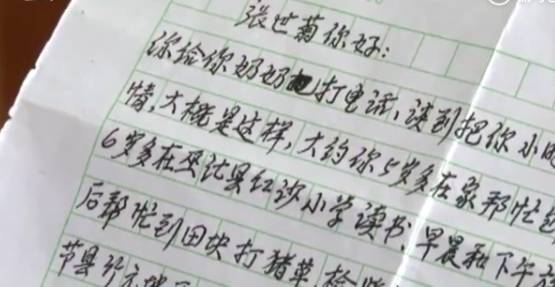 张世菊你好:
你给你妈妈打电话,谈到把你小时
情,大概是这样,大约你5岁多在家帮忙
6岁多在巫山县红沙小学读书,早晨和下午放
后帮忙到田块打猪草,捡
节县